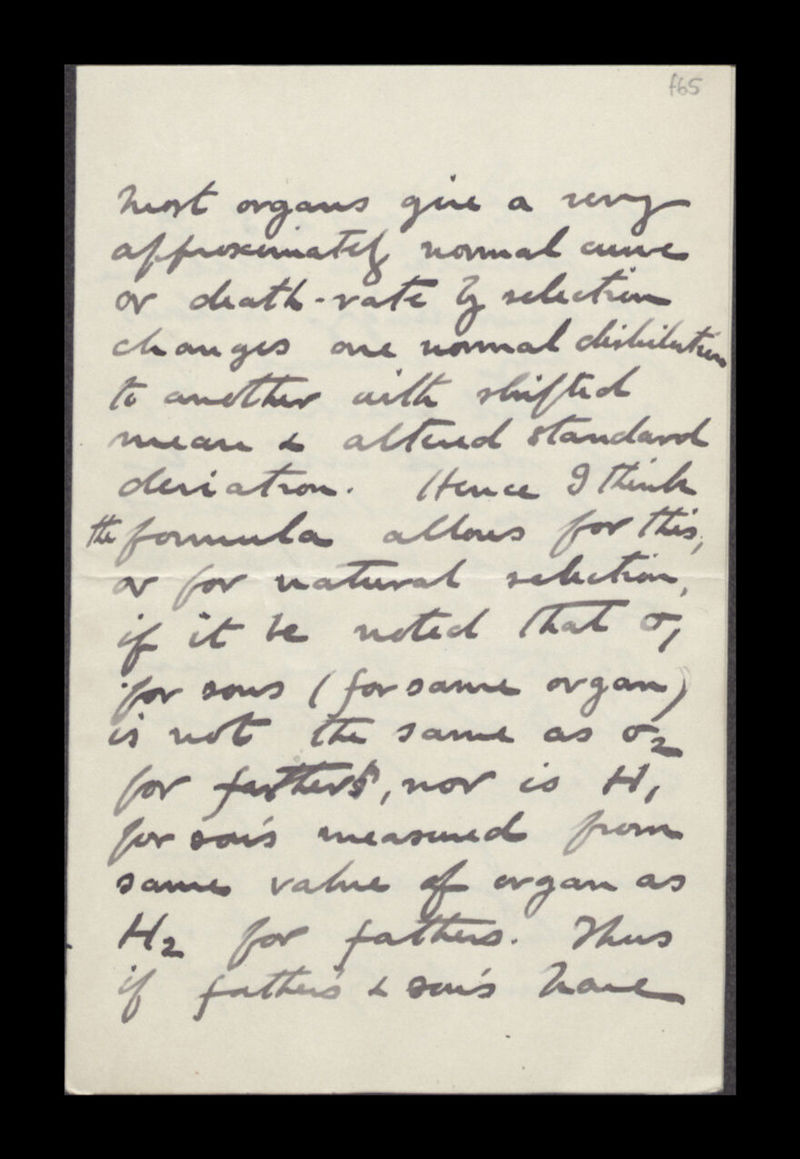 f65
Most organs give a very
approximately normal curve
or death-rate by selection
changes one normal distribution
to another with shifted
mean & altered standard
deviation. Hence I think
the formula allows for this,
or for natural selection,
if it be noted that σ₁
for sons (for same organ)
is not the same as σ₂
for fathers, nor is H₁
for sons measured from
same value of organ as
H₂ for fathers. Thus
if father's & son's have